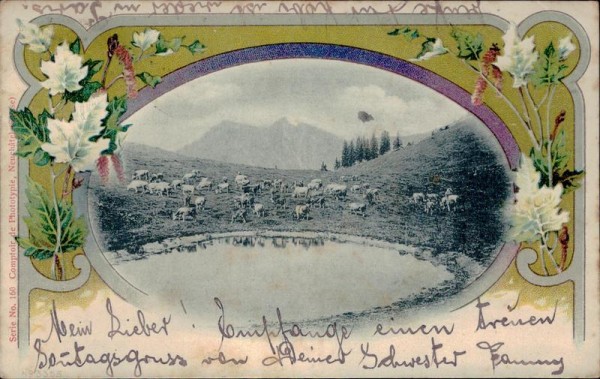 Mein Lieber! Empfange einen treuen
Sontagsgruss von Deiner Schwester Fanny
Serie No. 160 Comptoir de Phototypie, Neuchâtel